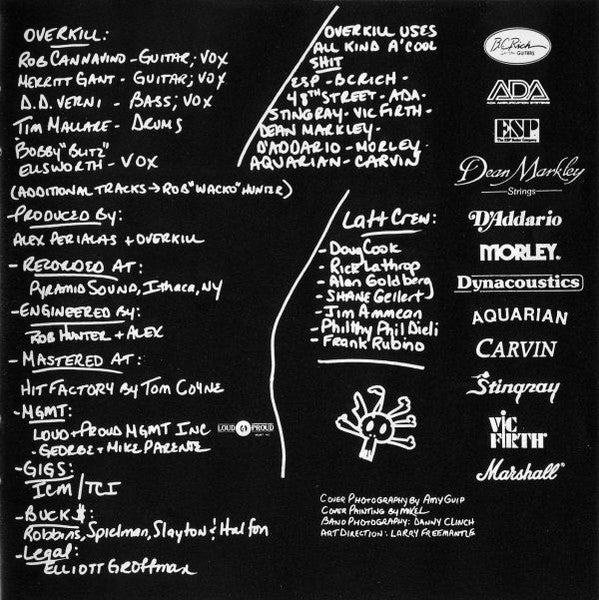 OVERKILL:
ROB CANNAVINO - GUITAR, VOX
MERRITT GANT - GUITAR, VOX
D.D. VERNI - BASS, VOX
TIM MALLARE - DRUMS
BOBBY "BLITZ"
ELLSWORTH - VOX
(ADDITIONAL TRACKS → ROB "WACKO" HUNTER)
- PRODUCED BY:
ALEX PERIALAS + OVERKILL
- RECORDED AT:
PYRAMID SOUND, ITHACA, NY
- ENGINEERED BY:
ROB HUNTER + ALEX
- MASTERED AT:
HIT FACTORY BY TOM COYNE
- MGMT:
LOUD + PROUD MGMT INC
- GEORGE + MIKE PARENTE
LOUD & PROUD
- GIGS:
ICM / TCI
- BUCK$:
Robbins, Spielman, Slayton & Halfon
- Legal:
ELLIOTT GROFFMAN
OVERKILL USES
ALL KIND A' COOL
SHIT
ESP - BCRICH -
48TH STREET - ADA -
STINGRAY - VIC FIRTH -
DEAN MARKLEY -
D'ADDARIO - MORLEY -
AQUARIAN - CARVIN
LAFF CREW:
- Doug Cook
- Rick Lathrop
- Alan Goldberg
- SHANE Geilert
- Jim Ammean
- Philthy Phil Dieli
- FRANK Rubino
COVER PHOTOGRAPHY BY AMY GUIP
COVER PAINTING BY MIKEL
BAND PHOTOGRAPHY: DANNY CLINCH
ART DIRECTION: LARRY FREEMANTLE
B.C. Rich
GUITARS
ADA
ADA AMPLIFICATION SYSTEMS
ESP
The ESP Guitar Company
Dean Markley
Strings
D'Addario
MORLEY®
Dynacoustics
AQUARIAN
CARVIN
Stingray
VIC
FIRTH®
Marshall®